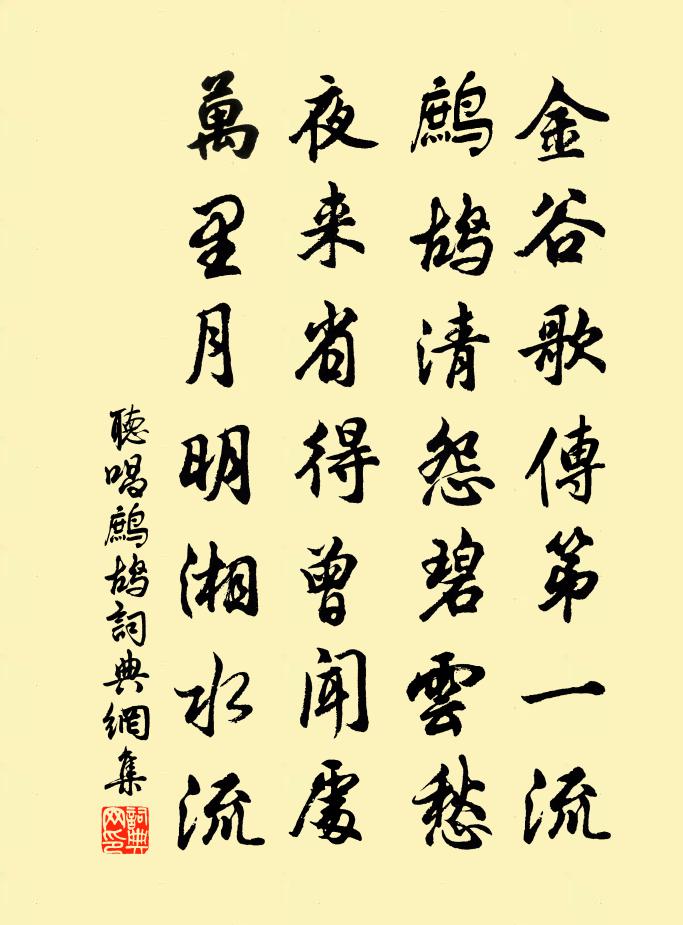 金谷歌傳第一流
鷓鴣清怨碧雲愁
夜来省得曾聞處
萬里月明湘水流
聽唱鷓鴣詞典網集
詞典網印